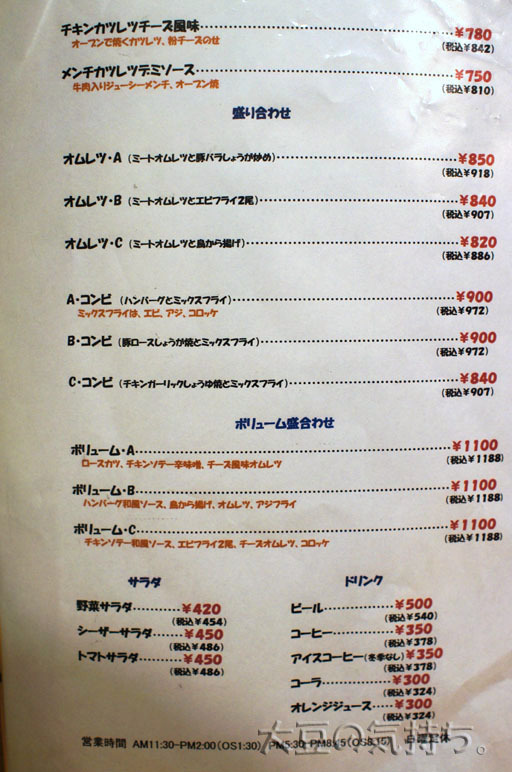 チキンカツレツチーズ風味 ¥780
オーブンで焼くカツレツ、粉チーズのせ (税込¥842)
メンチカツレツデミソース ¥750
牛肉入りジューシーメンチ、オーブン焼 (税込¥810)
盛り合わせ
オムレツ・A (ミートオムレツと豚バラしょうが炒め) ¥850
(税込¥918)
オムレツ・B (ミートオムレツとエビフライ2尾) ¥840
(税込¥907)
オムレツ・C (ミートオムレツと鳥から揚げ) ¥820
(税込¥886)
A・コンビ (ハンバーグとミックスフライ) ¥900
ミックスフライは、エビ、アジ、コロッケ (税込¥972)
B・コンビ (豚ロースしょうが焼とミックスフライ) ¥900
(税込¥972)
C・コンビ (チキンガーリックしょうゆ焼とミックスフライ) ¥840
(税込¥907)
ボリューム盛合わせ
ボリューム・A ¥1100
ロースカツ、チキンソテー辛味噌、チーズ風味オムレツ (税込¥1188)
ボリューム・B ¥1100
ハンバーグ和風ソース、鳥から揚げ、オムレツ、アジフライ (税込¥1188)
ボリューム・C ¥1100
チキンソテー和風ソース、エビフライ2尾、チーズオムレツ、コロッケ (税込¥1188)
サラダ
野菜サラダ ¥420
(税込¥454)
シーザーサラダ ¥450
(税込¥486)
トマトサラダ ¥450
(税込¥486)
ドリンク
ビール ¥500
(税込¥540)
コーヒー ¥350
(税込¥378)
アイスコーヒー(冬季なし) ¥350
(税込¥378)
コーラ ¥300
(税込¥324)
オレンジジュース ¥300
(税込¥324)
営業時間 AM11:30-PM2:00(OS1:30) PM5:30-PM8:45(OS8:15) 日曜定休
大豆の気持ち。